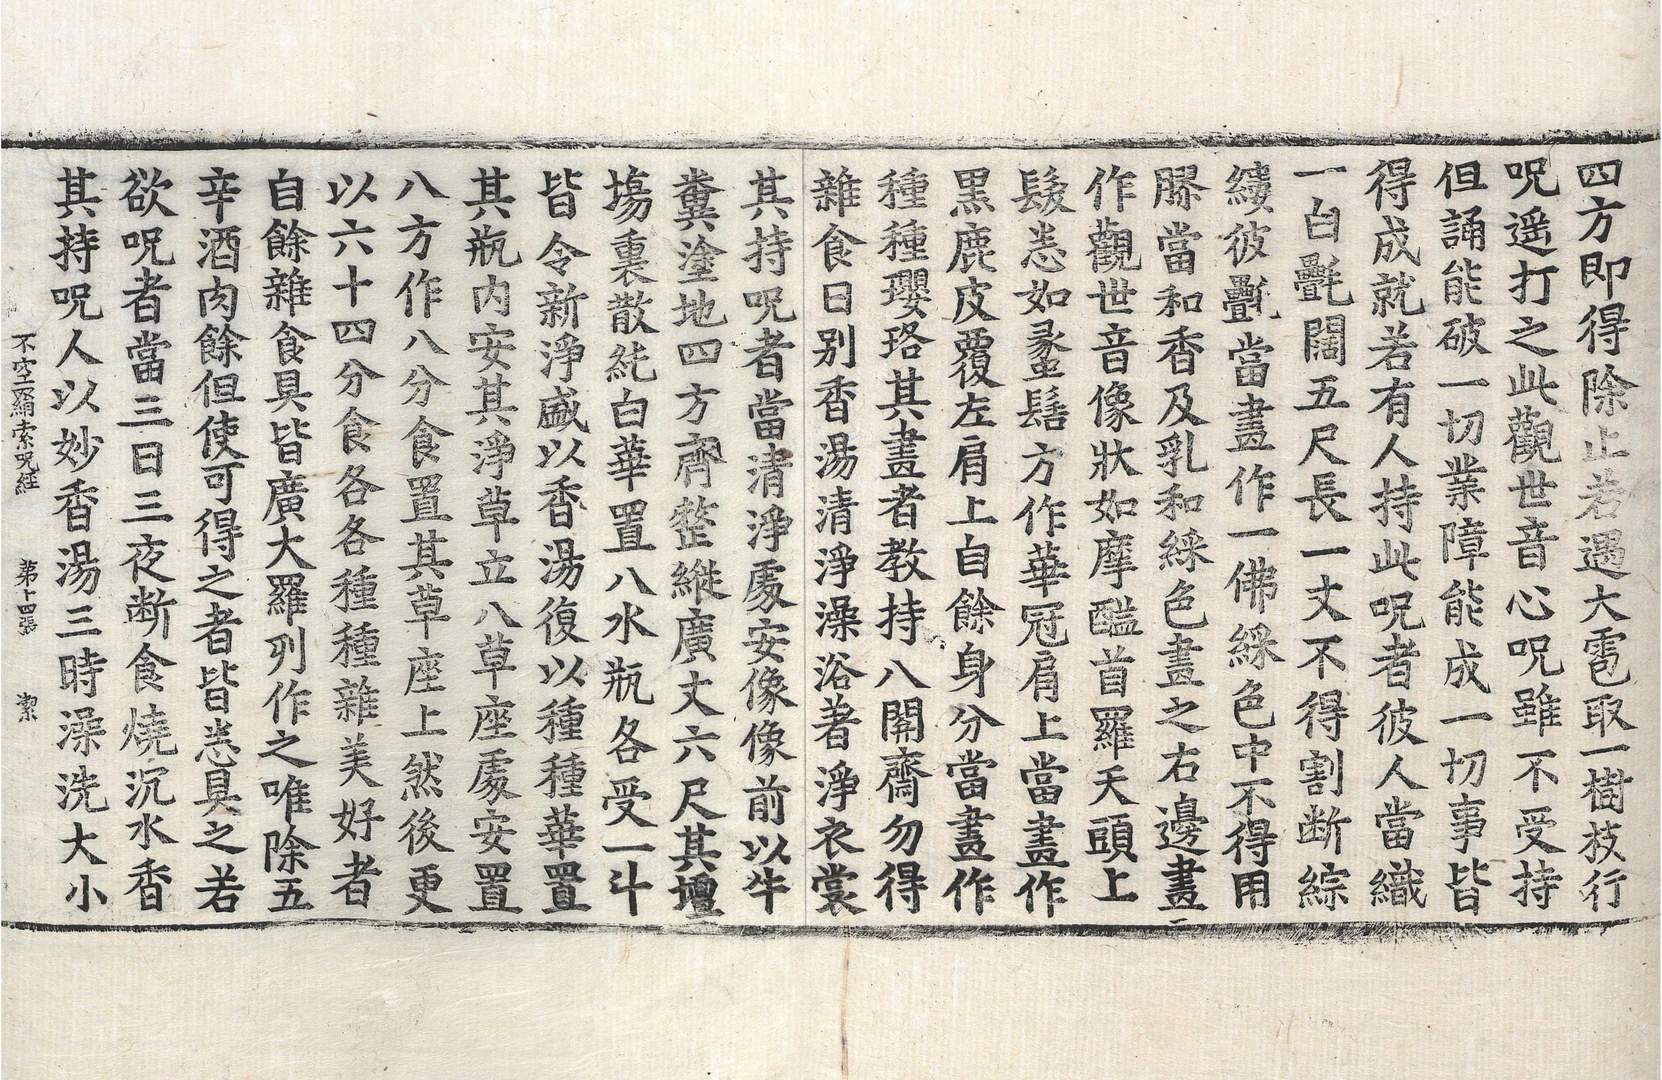 四方即得除止若遇大雹取一樹枝行
呪遥打之此觀世音心呪雖不受持
但誦能破一切業障能成一切事皆
得成就若有人持此呪者彼人當織
一白㲲闊五尺長一丈不得割断綜
縷彼㲲當畫作一佛綵色中不得用
膠當和香及乳和綵色畫之右邊畫
作觀世音像狀如摩醯首羅天頭上
髮悉如螽䗥髻方作華冠肩上當畫作
黒鹿皮覆左肩上自餘身分當畫作
種種瓔珞其畫者教持八關齋勿得
雜食日別香湯清淨澡浴著淨衣裳
其持呪者當清淨處安像像前以牛
糞塗地四方齊整縱廣丈六尺其壇
場裏散純白華置八水瓶各受一斗
皆令新淨盛以香湯復以種種華置
其瓶内安其淨草立八草座處安置
八方作八分食置其草座上然後更
以六十四分食各各種種雜美好者
自餘雜食具皆廣大羅列作之唯除五
辛酒肉餘但使可得之者皆悉具之若
欲呪者當三日三夜断食燒沉水香
其持呪人以妙香湯三時澡洗大小
不空羂索呪経 第十四張 潔